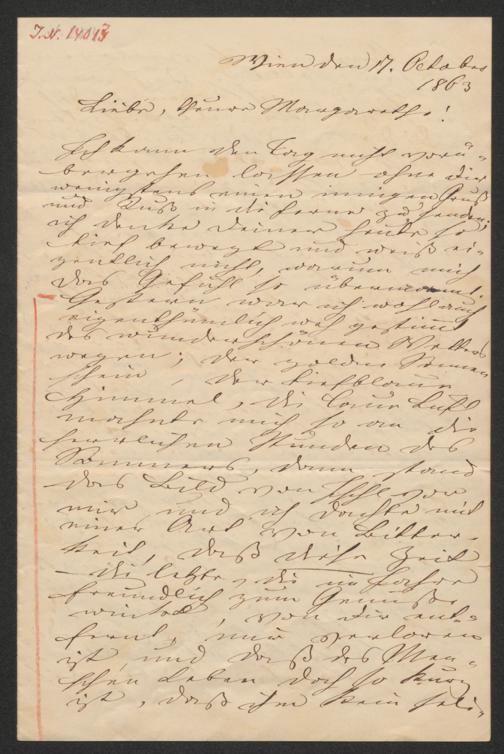 I.N. 14043
Wien den 17. October
1863
Liebe, theure Margareth.!
Ich kann den Tag nicht vorü-
bergehen lassen ohne dir
wenigstens einen innigen Gruß
und Kuß in die Ferne zu senden,
ich denke deiner heute so
tief bewegt und weiß ei-
gentlich nicht, warum mich
das Gefühl so übermannt.
Gestern war ich wohl auch
eigenthümlich weh gestimmt
des wunderschönen Wetters
wegen; der goldne Sonnen
schein, der tiefblaue
Himmel, die laue Luft
mahnte mich so an die
herrlichen Stunden des
Sommers, dann stand
das Bild von Ischl vor
mir und ich dachte mit
einer Art von Bitter-
keit, daß diese Zeit
– die letzte, die im Jahre
freundlich zum Genuße
winkt, von dir ent-
fernt, mir verloren
ist, und daß des Men-
schen Leben doch so kurz
ist, daß ihm kein seli-